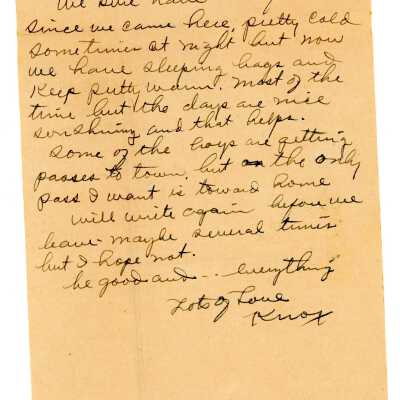 We sure have
since we came here, pretty cold
sometimes at night but now
we have sleeping bags and
keep pretty warm. most of the
time but the days are nice
sunshining and that helps.
Some of the boys are getting
passes to town, but the only
pass I want is toward home
will write again before we
leave - maybe several times
but I hope not.
be good and -- everything
Lots of Love
Knox